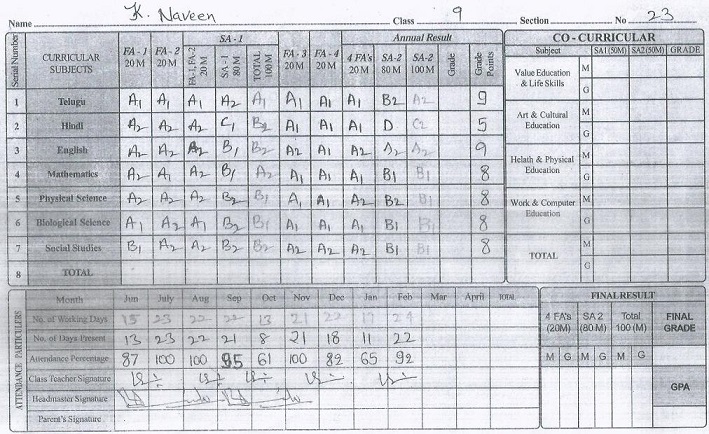 Name K. Naveen Class 9 Section No 23
Serial Number CURRICULAR SUBJECTS FA - 1 20 M FA - 2 20 M SA - 1 FA-1, FA-2 20 M SA - 1 80 M TOTAL 100 M FA - 3 20 M FA - 4 20 M Annual Result 4 FA's 20 M SA-2 80 M SA-2 100 M Grade Grade Points
1 Telugu A1 A1 A1 A2 A1 A1 A1 A1 B2 A2 9
2 Hindi A2 A2 A2 C1 B2 A1 A1 A1 D C2 5
3 English A2 A2 A2 B1 B2 A2 A1 A2 A2 A2 9
4 Mathematics A2 A1 A2 B1 A2 A1 A1 A1 B1 B1 8
5 Physical Science A2 A2 A2 B2 B1 A1 A1 A2 B1 B1 8
6 Biological Science A1 A2 A1 B2 B1 A1 A1 A1 B1 B1 8
7 Social Studies B1 A2 A2 B2 B2 A2 A2 A2 B1 B1 8
8 TOTAL
CO - CURRICULAR
Subject SA1 (50M) SA2 (50M) GRADE
Value Education & Life Skills M G
Art & Cultural Education M G
Helath & Physical Education M G
Work & Computer Education M G
TOTAL M G
ATTENDANCE PARTICULERS
Month Jun July Aug Sep Oct Nov Dec Jan Feb Mar April TOTAL
No. of Working Days 15 23 22 22 13 21 22 17 24
No. of Days Present 13 23 22 21 8 21 18 11 22
Attendance Percentage 87 100 100 95 61 100 82 65 92
Class Teacher Signature
Headmaster Signature
Parent's Signature
FINAL RESULT
4 FA's (20M) SA 2 (80 M) Total 100 (M) FINAL GRADE
M G M G M G
GPA